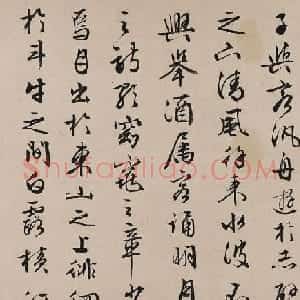 子與客汎舟遊於赤壁
之下清風徐來水波不
興舉酒屬客誦明月
之詩歌窈窕之章少
焉月出於東山之上徘徊
於斗牛之間白露橫
Shufaziliao.com